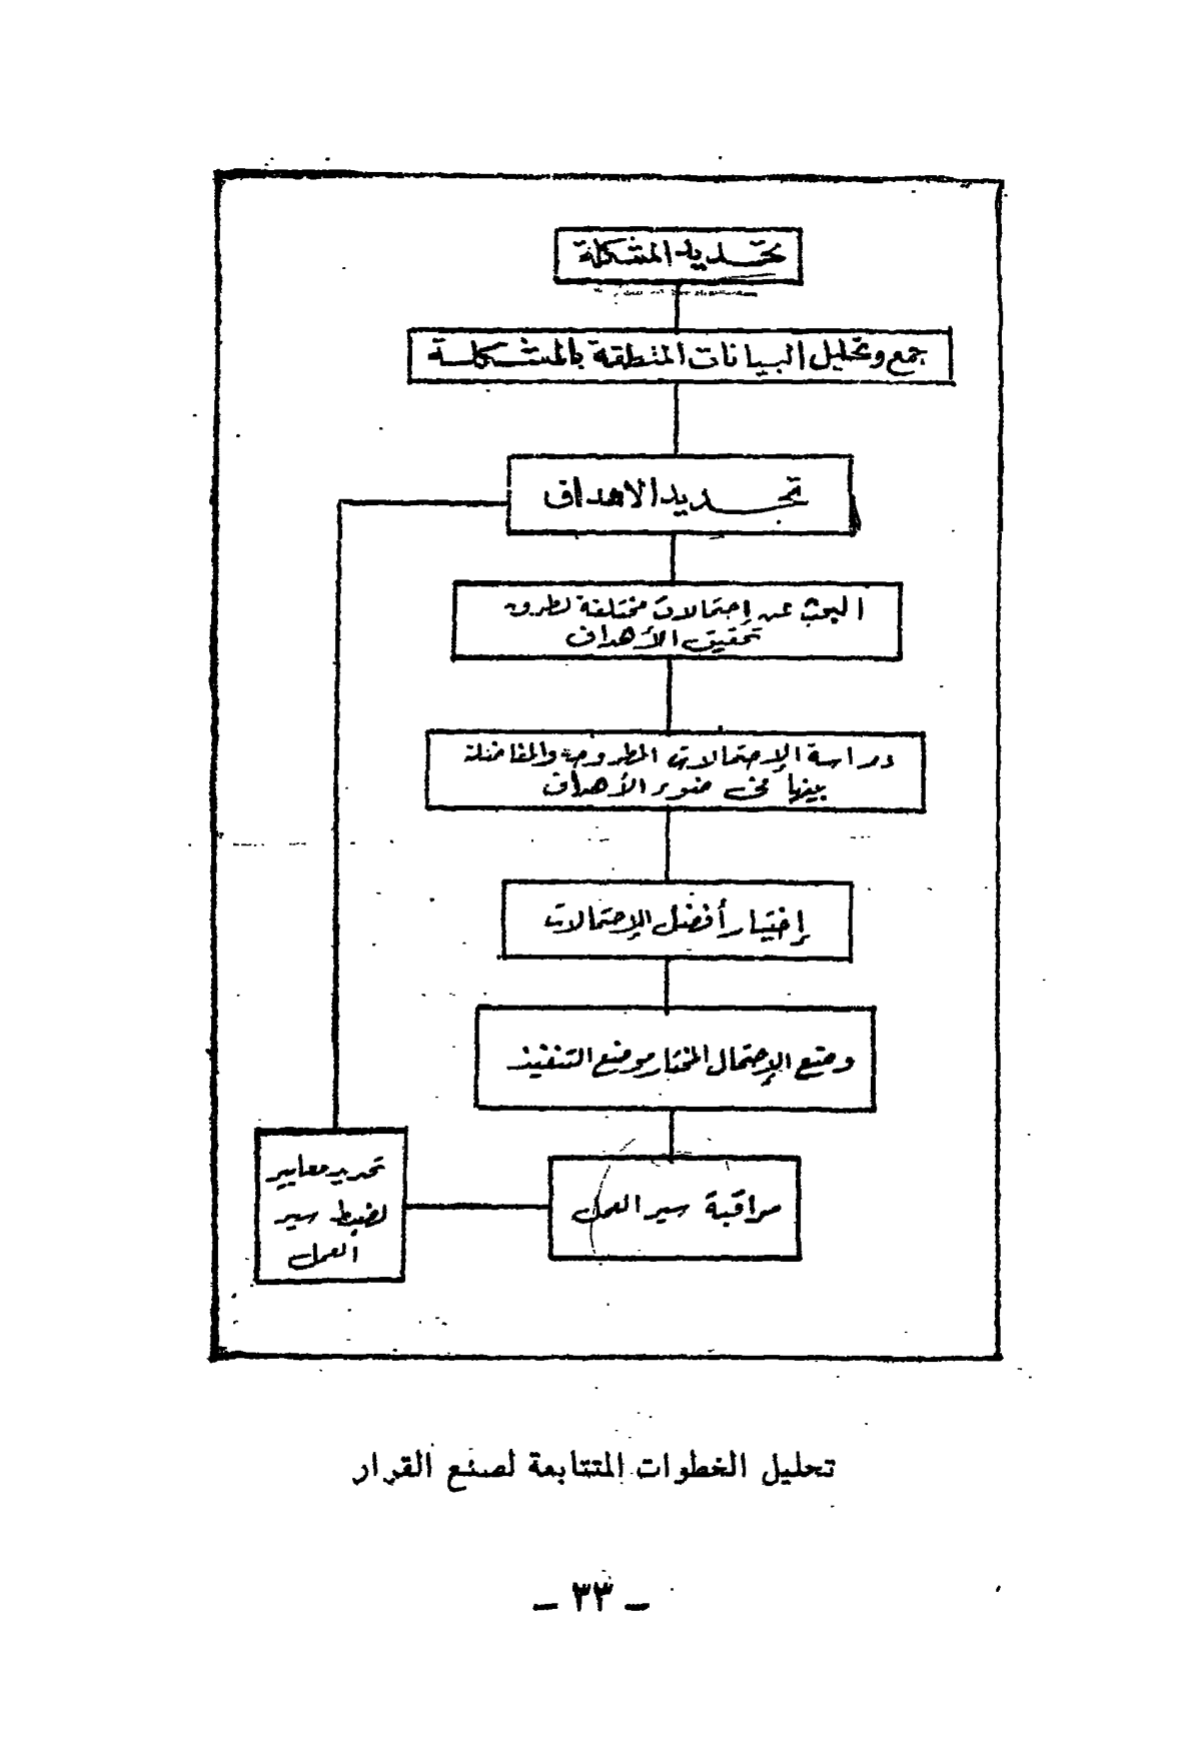 تحديد المشكلة
جمع وتحليل البيانات المتعلقة بالمشكلة
تحديد الاهداف
البحث عن إحتمالات مختلفة لطرق
تحقيق الأهداف
دراسة الإحتمالات المطروحة والمفاضلة
بينها في ضوء الأهداف
إختيار أفضل الإحتمالات
وضع الإحتمال المختار موضع التنفيذ
مراقبة سير العمل
تحديد معايير
لضبط سير
العمل
تحليل الخطوات المتتابعة لصنع القرار
ـ ٣٣ ـ